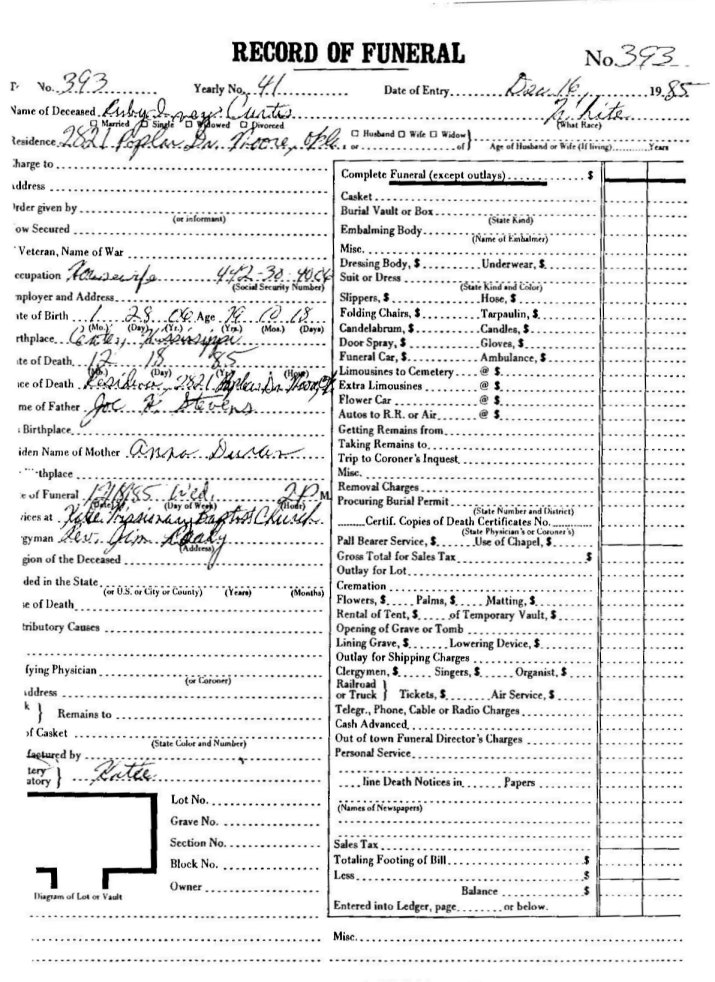 RECORD OF FUNERAL
No. 393
No. 393 Yearly No. 41 Date of Entry Dec 16, 1985
Name of Deceased Ruby Curtis White
Married Single Widowed Divorced (What Race)
Residence 2821 Poplar Dr. Moore, Okla. Husband Wife Widow or of Age of Husband or Wife (If living) Years
Charge to
Address
Order given by
(or informant)
ow Secured
Veteran, Name of War
ccupation Housewife 442-30-
(Social Security Number)
mployer and Address
ate of Birth 1 28 06 Age 79 10 18
(Mo.) (Day) (Yr.) (Yrs.) (Mos.) (Days)
rthplace Mississippi
ate of Death 12 85
(Mo.) (Day) (Yr.) (Hour)
ace of Death Residence, 2821 Poplar Dr. Moore
me of Father Joe Stevens
s Birthplace
iden Name of Mother Anna
thplace
e of Funeral 12/18/85 Wed. 2 P M.
(Date) (Day of Week) (Hour)
vices at Missionary Baptist Church
gyman Rev. Jim
(Address)
gion of the Deceased
ded in the State
(or U.S. or City or County) (Years) (Months)
se of Death
tributory Causes
fying Physician
(or Coroner)
Address
k } Remains to
of Casket
(State Color and Number)
factured by
tery
atory }
Lot No.
Grave No.
Section No.
Block No.
Owner
Diagram of Lot or Vault
Complete Funeral (except outlays) $
Casket
Burial Vault or Box
(State Kind)
Embalming Body
(Name of Embalmer)
Misc.
Dressing Body, $ Underwear, $
Suit or Dress
(State Kind and Color)
Slippers, $ Hose, $
Folding Chairs, $ Tarpaulin, $
Candelabrum, $ Candles, $
Door Spray, $ Gloves, $
Funeral Car, $ Ambulance, $
Limousines to Cemetery @ $
Extra Limousines @ $
Flower Car @ $
Autos to R.R. or Air @ $
Getting Remains from
Taking Remains to
Trip to Coroner's Inquest
Misc.
Removal Charges
Procuring Burial Permit
(State Number and District)
Certif. Copies of Death Certificates No.
(State Physician's or Coroner's)
Pall Bearer Service, $ Use of Chapel, $
Gross Total for Sales Tax $
Outlay for Lot
Cremation
Flowers, $ Palms, $ Matting, $
Rental of Tent, $ of Temporary Vault, $
Opening of Grave or Tomb
Lining Grave, $ Lowering Device, $
Outlay for Shipping Charges
Clergymen, $ Singers, $ Organist, $
Railroad
or Truck } Tickets, $ Air Service, $
Telegr., Phone, Cable or Radio Charges
Cash Advanced
Out of town Funeral Director's Charges
Personal Service
line Death Notices in Papers
(Names of Newspapers)
Sales Tax
Totaling Footing of Bill $
Less $
Balance $
Entered into Ledger, page or below.
Misc.